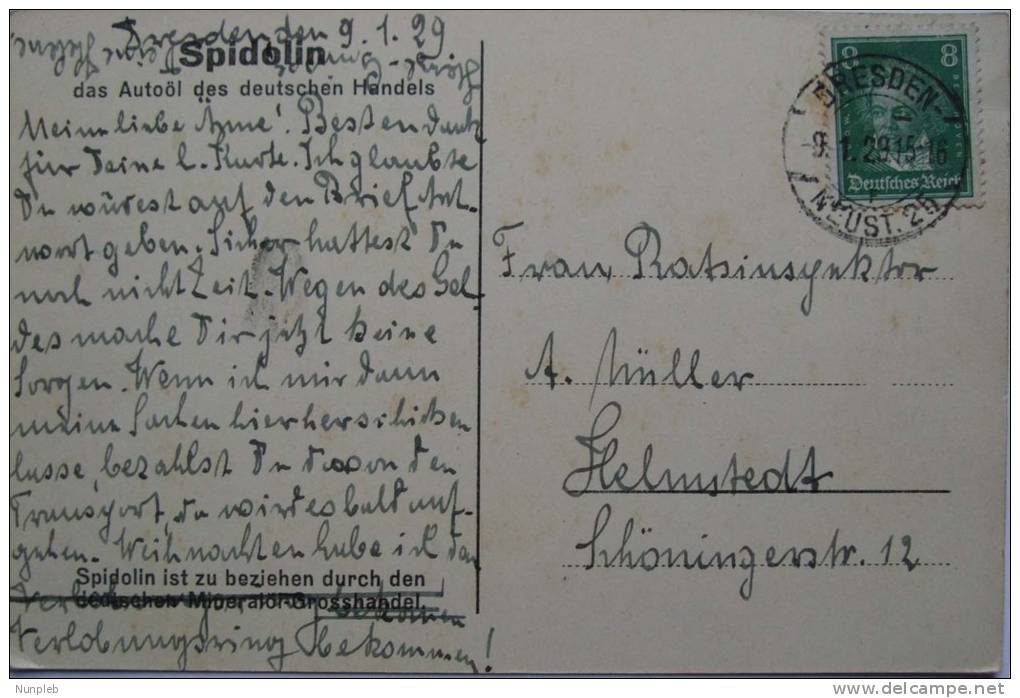 Dresden den 9.1.29
Spidolin
das Autoöl des deutschen Handels
Meine liebe Änne! Besten Dank
für Deine l. Karte. Ich glaubte
Du würdest auf den Brief Ant-
wort geben. Sicher hattest Du
noch nicht Zeit. Wegen des Gel-
des mache Dir jetzt keine
Sorgen. Wenn ich mir dann
meine Sachen hierherschicken
lasse, bezahlst Du davon den
Transport, da wird es bald auf-
gehen. Weihnachten habe ich den
Spidolin ist zu beziehen durch den
deutschen Mineralöl-Grosshandel.
bekommen
Verlobungsring bekommen!
8 8
Deutsches Reich
DRESDEN-
-9.1.29.15-16
NEUST. 25
Frau Ratsinspektor
A. Müller
Helmstedt
Schöningerstr. 12
Nunpleb
delcampe.net